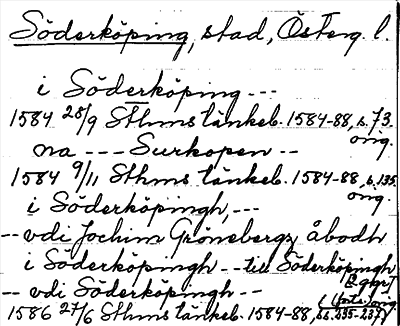 Söderköping, stad, Österg. l.
i Söderköping ---
1584 28/9 Sthms tänkeb. 1584-88, s. 73.
orig.
na --- Surkopen --
1584 9/11 Sthms tänkeb. 1584-88, s. 135
orig.
i Söderköpingh, ---
-- vdi Jochim Grönebergz åbodh
i Söderköpingh -- till Söderköpingh
[2 ggr]
-- vdi Söderköping --
orig.
1586 27/6 Sthms tänkeb. 1584-88, ss. 235-237